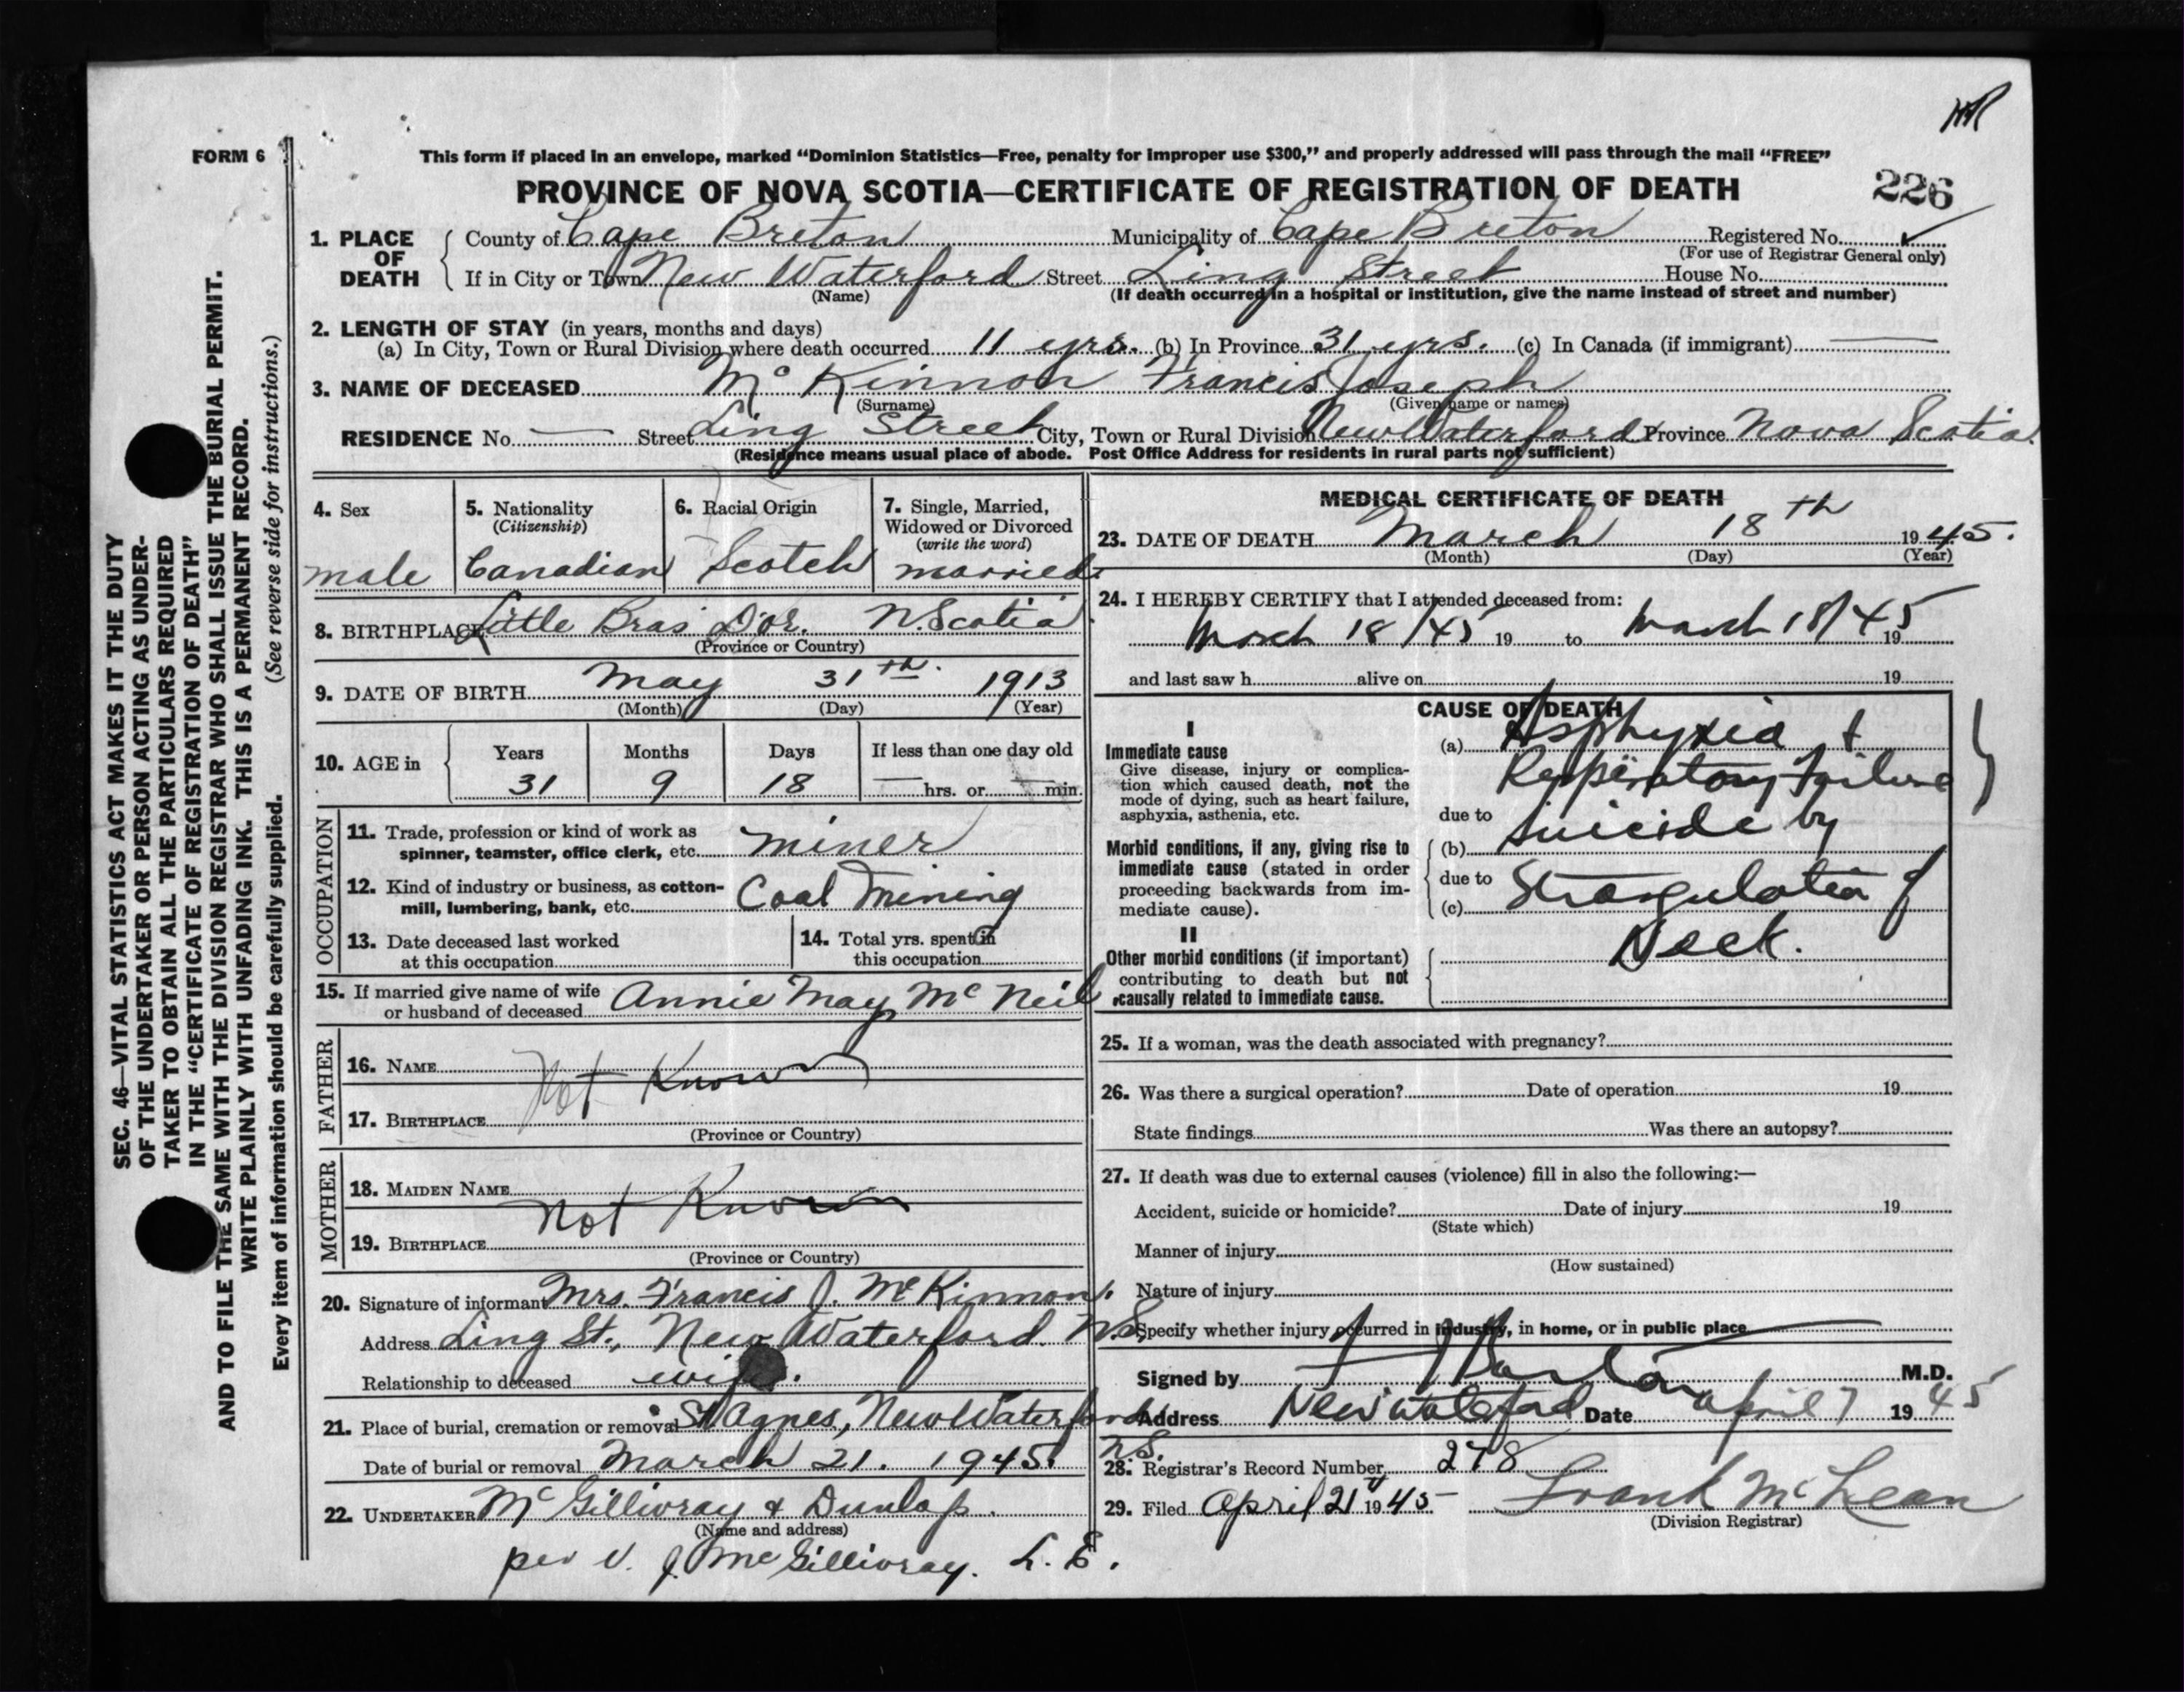 FORM 6
This form if placed in an envelope, marked “Dominion Statistics—Free, penalty for improper use $300,” and properly addressed will pass through the mail “FREE”
PROVINCE OF NOVA SCOTIA—CERTIFICATE OF REGISTRATION OF DEATH
226
1. PLACE OF DEATH
County of Cape Breton Municipality of Cape Breton Registered No. ✓
(For use of Registrar General only)
If in City or Town New Waterford Street Ling Street House No.
(Name)
(If death occurred in a hospital or institution, give the name instead of street and number)
2. LENGTH OF STAY (in years, months and days)
(a) In City, Town or Rural Division where death occurred 11 yrs. (b) In Province 31 yrs. (c) In Canada (if immigrant) —
3. NAME OF DECEASED Mc Kinnon Francis Joseph
(Surname) (Given name or names)
RESIDENCE No. — Street Ling Street City, Town or Rural Division New Waterford Province Nova Scotia.
(Residence means usual place of abode. Post Office Address for residents in rural parts not sufficient)
4. Sex
male
5. Nationality
(Citizenship)
Canadian
6. Racial Origin
Scotch
7. Single, Married,
Widowed or Divorced
(write the word)
married.
8. BIRTHPLACE Little Bras D'or. N. Scotia
(Province or Country)
9. DATE OF BIRTH May 31th. 1913
(Month) (Day) (Year)
10. AGE in
Years Months Days If less than one day old
31 9 18 — hrs. or min.
OCCUPATION
11. Trade, profession or kind of work as
spinner, teamster, office clerk, etc. miner
12. Kind of industry or business, as cotton-
mill, lumbering, bank, etc. Coal Mining
13. Date deceased last worked
at this occupation
14. Total yrs. spent in
this occupation
15. If married give name of wife
or husband of deceased Annie May Mc Neil
FATHER
16. NAME
Not Known
17. BIRTHPLACE
(Province or Country)
MOTHER
18. MAIDEN NAME
Not Known
19. BIRTHPLACE
(Province or Country)
20. Signature of informant Mrs. Francis J. McKinnon.
Address Ling St., New Waterford. N.S.
Relationship to deceased wife.
21. Place of burial, cremation or removal St Agnes, New Waterford N.S.
Date of burial or removal March 21. 1945.
22. UNDERTAKER McGillivray & Dunlap.
(Name and address)
per V. J. McGillivray. L. E.
MEDICAL CERTIFICATE OF DEATH
23. DATE OF DEATH March 18th 1945.
(Month) (Day) (Year)
24. I HEREBY CERTIFY that I attended deceased from:
March 18/45 19 to March 18/45 19
and last saw h alive on 19
CAUSE OF DEATH
I
Immediate cause
Give disease, injury or complica-
tion which caused death, not the
mode of dying, such as heart failure,
asphyxia, asthenia, etc.
Morbid conditions, if any, giving rise to
immediate cause (stated in order
proceeding backwards from im-
mediate cause).
II
Other morbid conditions (if important)
contributing to death but not
causally related to immediate cause.
(a) Asphyxia +
Respiratory Failure
due to
(b) Suicide by
due to
(c) Strangulation of
Neck.
25. If a woman, was the death associated with pregnancy?
26. Was there a surgical operation? Date of operation 19
State findings Was there an autopsy?
27. If death was due to external causes (violence) fill in also the following:—
Accident, suicide or homicide? Date of injury 19
(State which)
Manner of injury
(How sustained)
Nature of injury
Specify whether injury occurred in industry, in home, or in public place
Signed by M.D.
Address New Waterford Date April 7 1945
28. Registrar's Record Number 278
29. Filed April 21 1945 Frank McLean
(Division Registrar)
SEC. 46—VITAL STATISTICS ACT MAKES IT THE DUTY
OF THE UNDERTAKER OR PERSON ACTING AS UNDER-
TAKER TO OBTAIN ALL THE PARTICULARS REQUIRED
IN THE “CERTIFICATE OF REGISTRATION OF DEATH”
AND TO FILE THE SAME WITH THE DIVISION REGISTRAR WHO SHALL ISSUE THE BURIAL PERMIT.
WRITE PLAINLY WITH UNFADING INK. THIS IS A PERMANENT RECORD.
Every item of information should be carefully supplied. (See reverse side for instructions.)